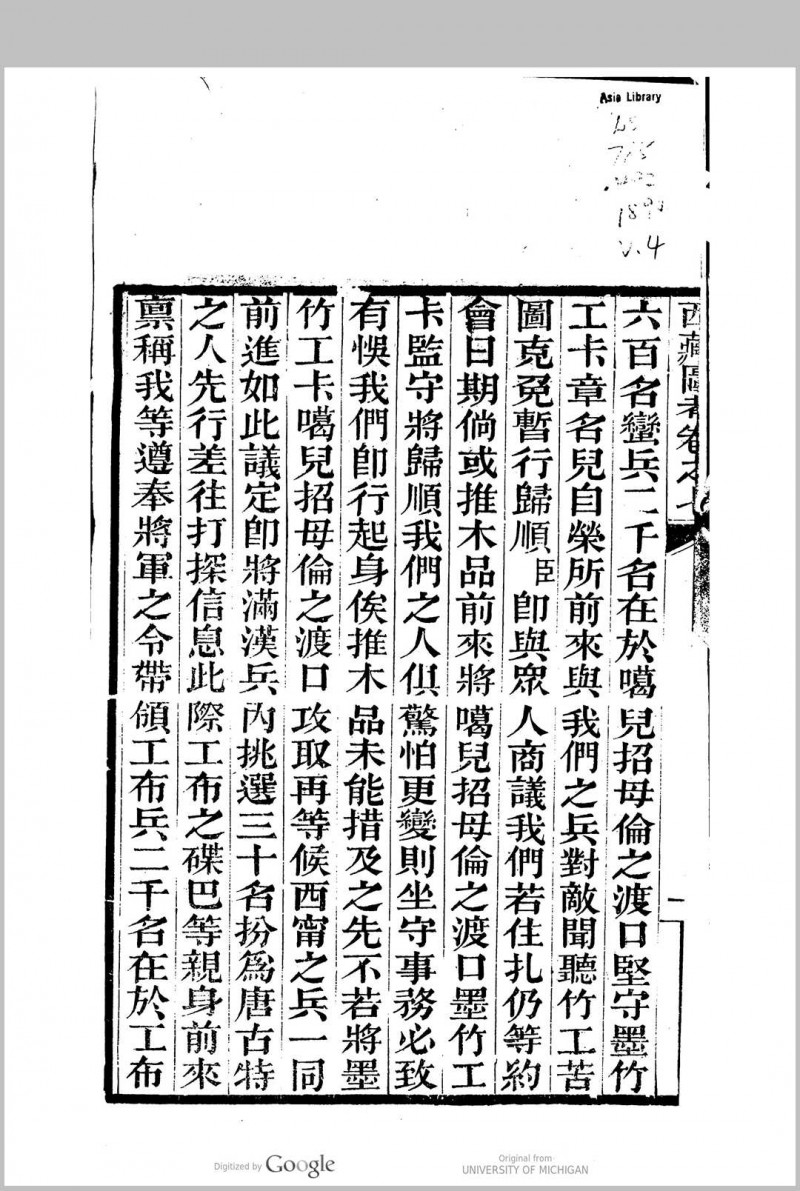 Asia Library
V.4
西藏圖考卷之七
六百名蠻兵二千名在於噶兒招母倫之渡口堅守墨竹
工卡章名兒自榮所前來與我們之兵對敵聞聽竹工苦
圖克兔暫行歸順臣卽與眾人商議我們若住扎仍等約
會日期倘或推木品前來將噶兒招母倫之渡口墨竹工
卡監守將歸順我們之人俱驚怕更變則坐守事務必致
有悞我們卽行起身俟推木品未能措及之先不若將墨
竹工卡噶兒招母倫之渡口攻取再等候西甯之兵一同
前進如此議定卽將滿漢兵內挑選三十名扮爲唐古特
之人先行差往打探信息此際工布之碟巴等親身前來
稟稱我等遵奉將軍之令帶領工布兵二千名在於工布
二
Digitized by Google
Original from
UNIVERSITY OF MICHIGAN